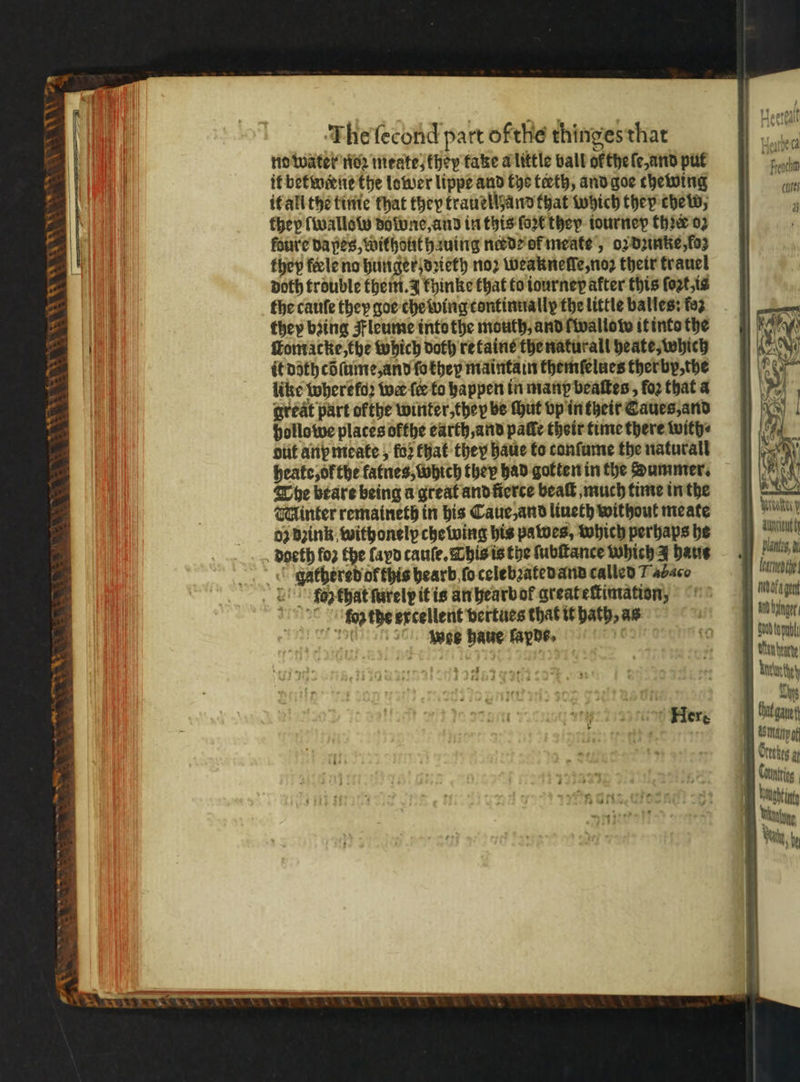 The ſecond part of the thinges that
no water nor meate, they take a little ball of theſe, and put
it betwéene the lower lippe and the téeth, and goe chewing
it all the time that they trauell, and that which they chew,
they ſwallow downe, and in this ſort they iourney thrée or
foure dayes, without hauing néede of meate, or drinke, for
they féele no hunger, drieth nor weakneſſe, nor their trauel
doth trouble them. I thinke that to iourney after this ſort, is
the cauſe they goe chewing continually the little balles: for
they bring Fleume into the mouth, and ſwallow it into the
ſtomacke, the which doth retaine the naturall heate, which
it doth cõſume, and ſo they maintain themſelues therby, the
like wherefor wée ſée to happen in many beaſtes, for that a
great part of the winter, they be ſhut vp in their Caues, and
hollowe places of the earth, and paſſe their time there with-
out any meate, for that they haue to conſume the naturall
heate, of the fatnes, which they had gotten in the Summer.
The beare being a great and fierce beaſt, much time in the
Winter remaineth in his Caue, and liueth without meate
or drink, with onely chewing his pawes, which perhaps he
doeth for the ſayd cauſe. This is the ſubſtance which I haue
gathered of this hearb, ſo celebrated and called Tabaco
for that ſurely it is an hearb of great eſtimation,
for the excellent vertues that it hath, as
wee haue ſayde.
Here